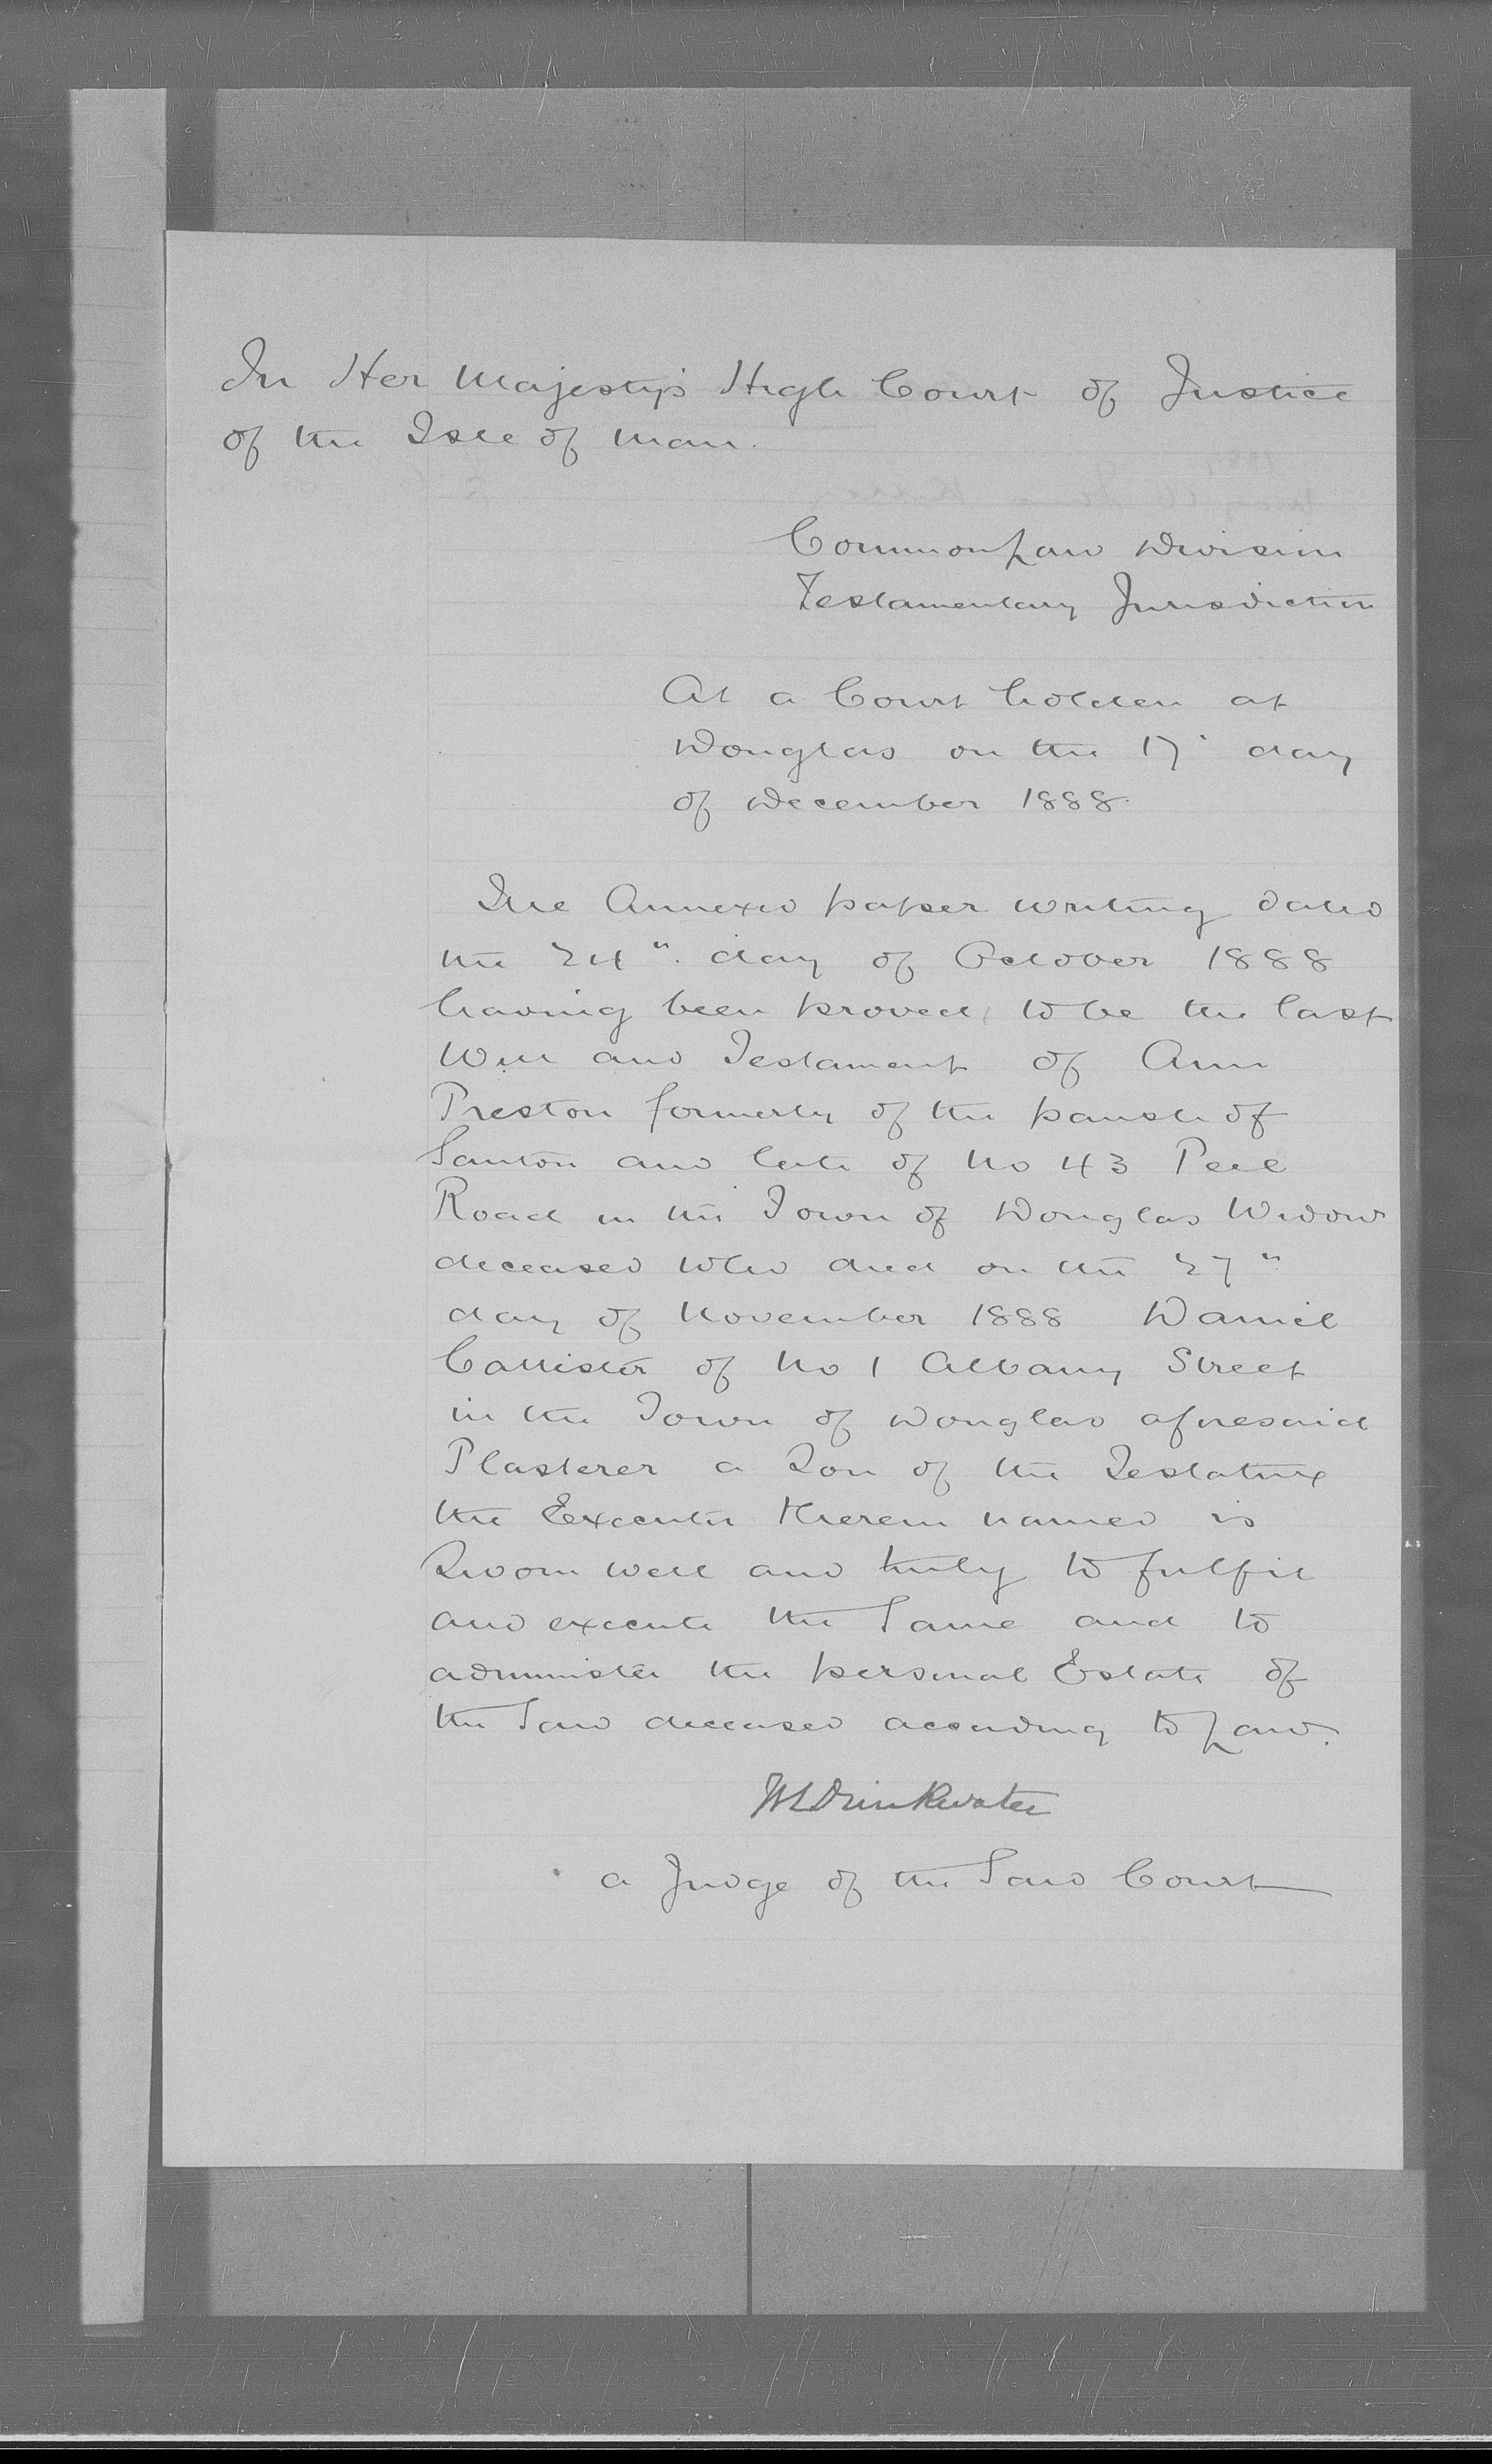 In Her Majesty's High Court of Justice
of the Isle of Man.
Common Law Division
Testamentary Jurisdiction
At a Court holden at
Douglas on the 17 day
of December 1888.
The Annexed paper writing dated
the 24" day of October 1888
having been proved to be the last
Will and Testament of Ann
Preston formerly of the parish of
Santon and late of No 43 Peel
Road in the Town of Douglas Widow
deceased who died on the 27"
day of November 1888 Daniel
Callister of No 1 Albany Street
in the Town of Douglas aforesaid
Plasterer a Son of the Testatrix
the Executor therein named is
Sworn well and truly to fulfil
and execute the Same and to
administer the personal Estate of
the Said deceased according to Law.
W L Drinkwater
a Judge of the Said Court